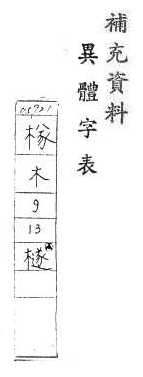 補充資料
異體字表
木
9
13
檖